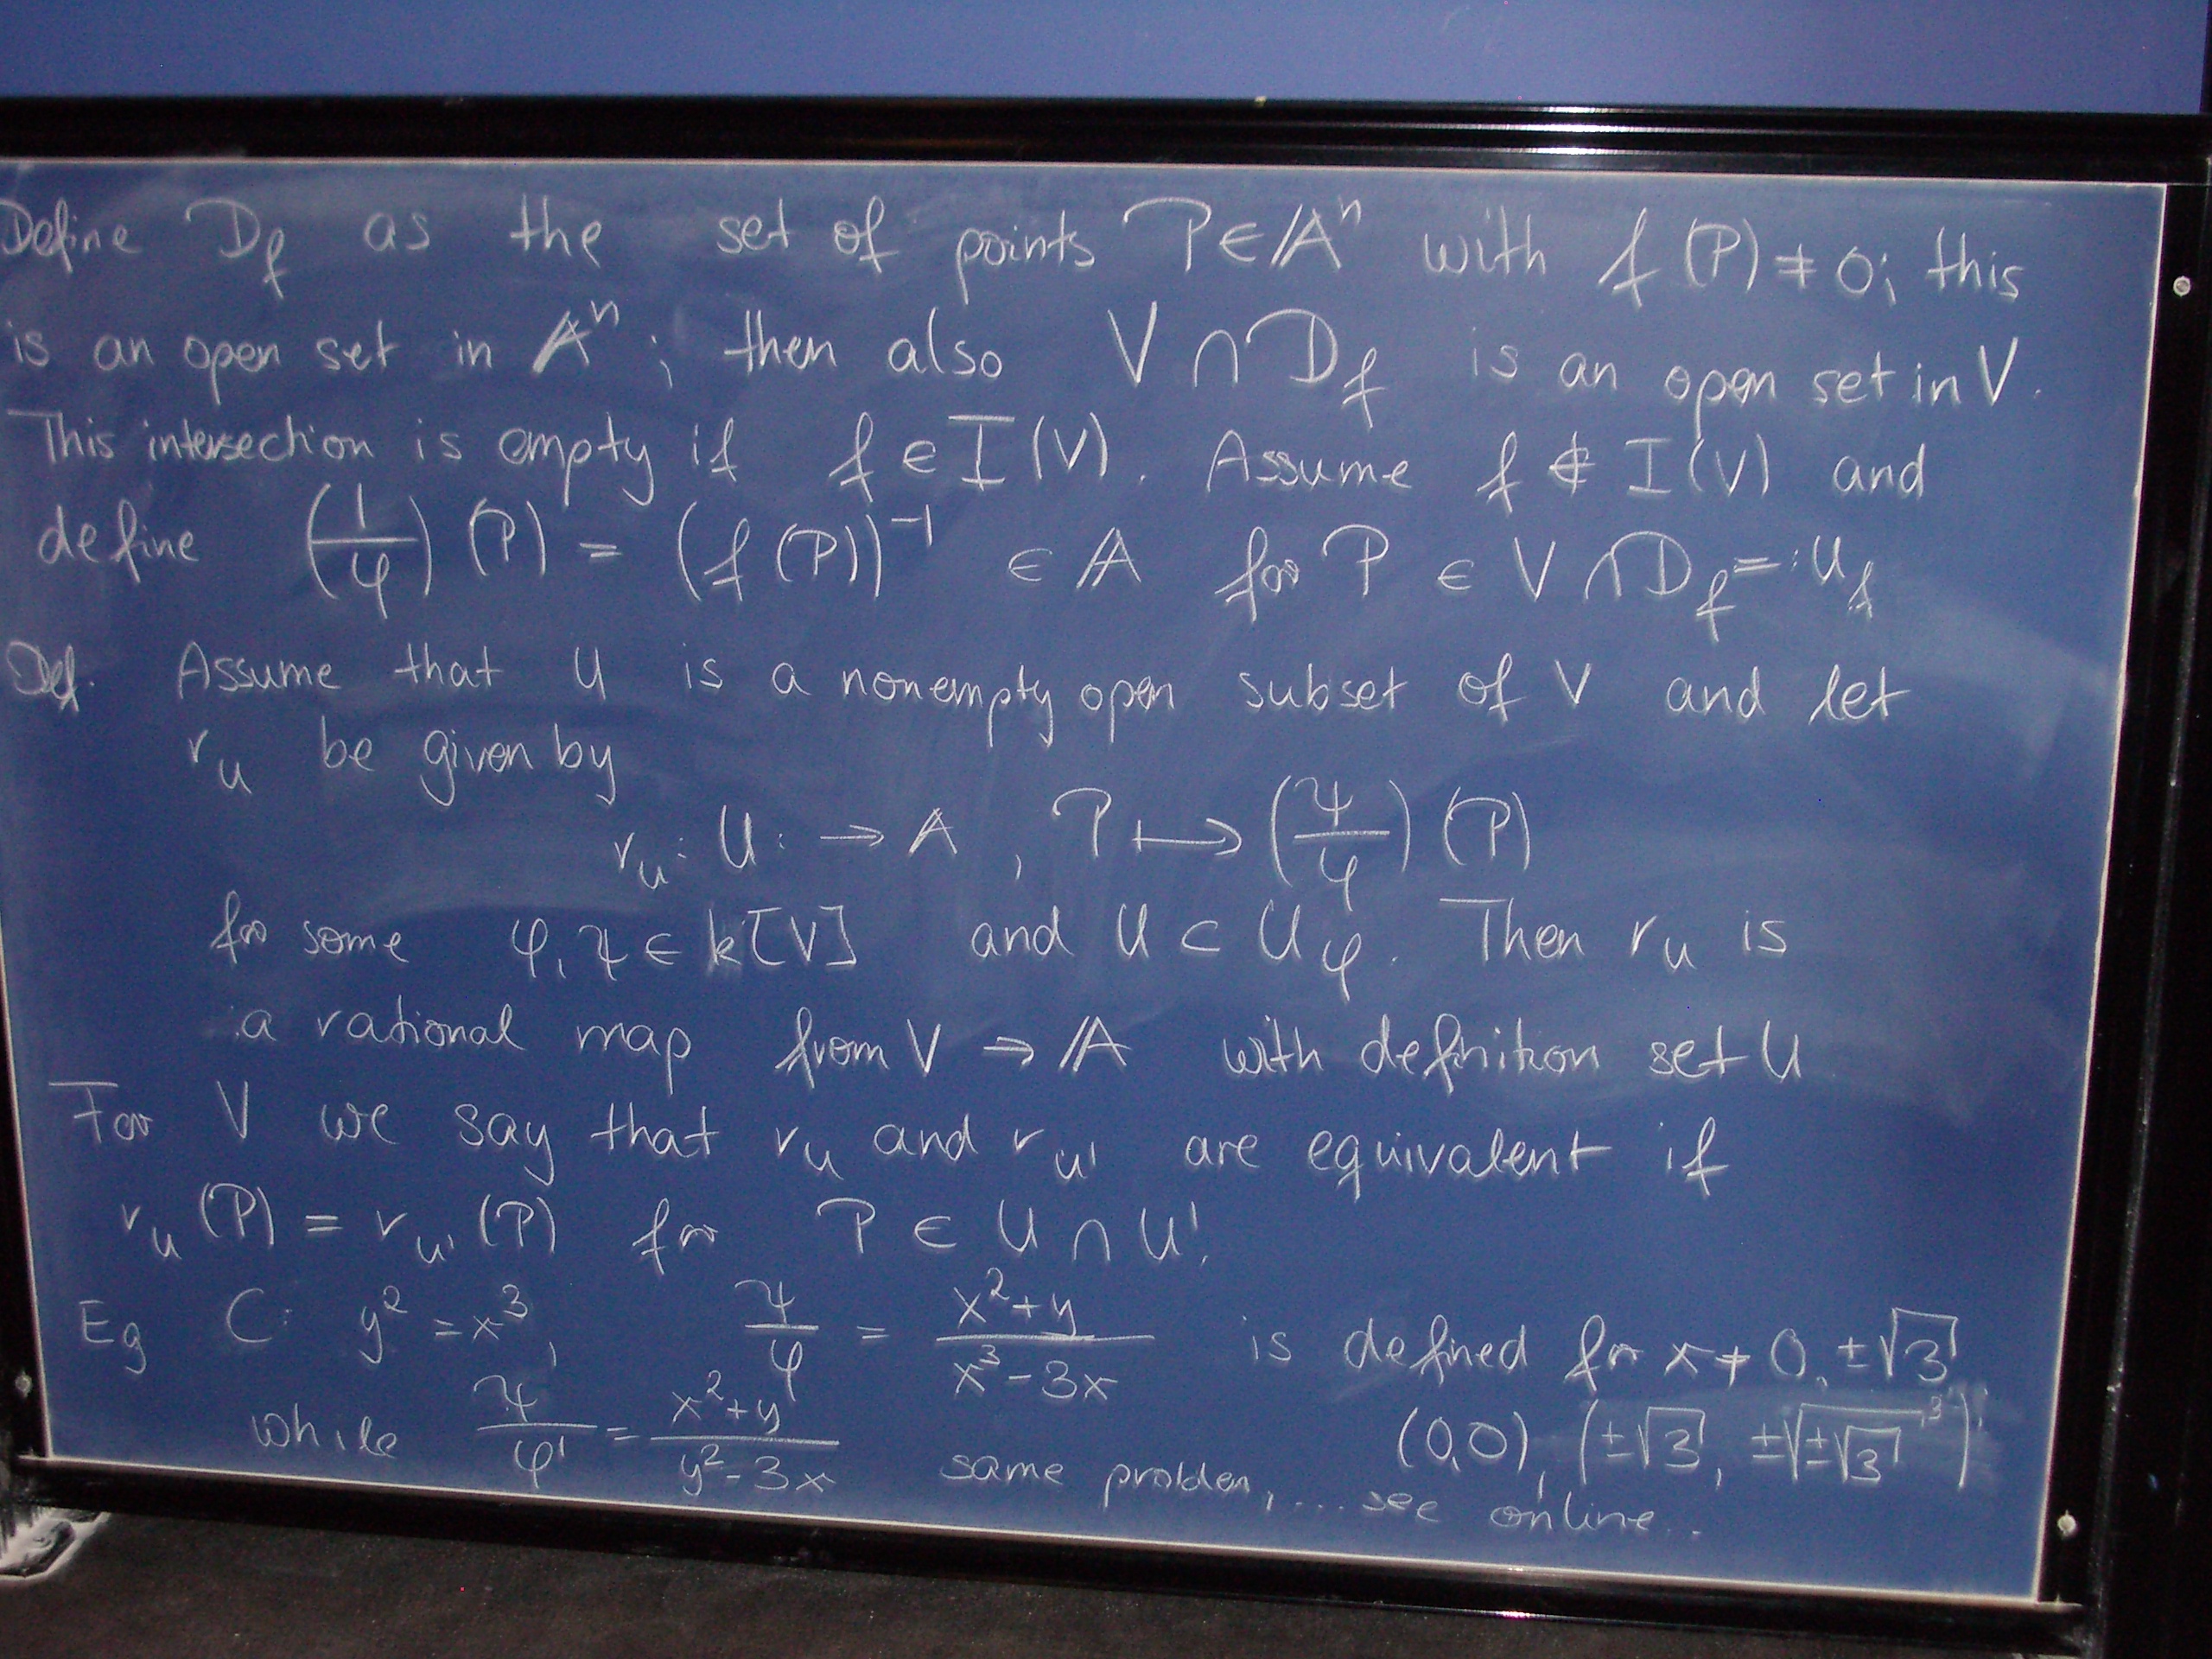 Define D_f as the set of points P∈𝔸ⁿ with f(P)≠0; this
is an open set in 𝔸ⁿ; then also V∩D_f is an open set in V.
This intersection is empty if f∈I(V). Assume f∉I(V) and
define (1/φ)(P) = (f(P))⁻¹ ∈ 𝔸 for P ∈ V∩D_f =: U_f
Def. Assume that U is a nonempty open subset of V and let
r_U be given by
r_U: U: → A, P ↦ (ψ/φ)(P)
for some φ,ψ ∈ k[V] and U ⊂ U_φ. Then r_U is
a rational map from V → 𝔸 with definition set U
For V we say that r_U and r_U' are equivalent if
r_U(P) = r_U'(P) for P ∈ U ∩ U'.
Eg C: y² = x³, ψ/φ = (x²+y)/(x³-3x) is defined for x ≠ 0, ±√3
(0,0), (±√3, ±√(±√3³))
while ψ/φ' = (x²+y)/(y²-3x) same problem, ... see online..